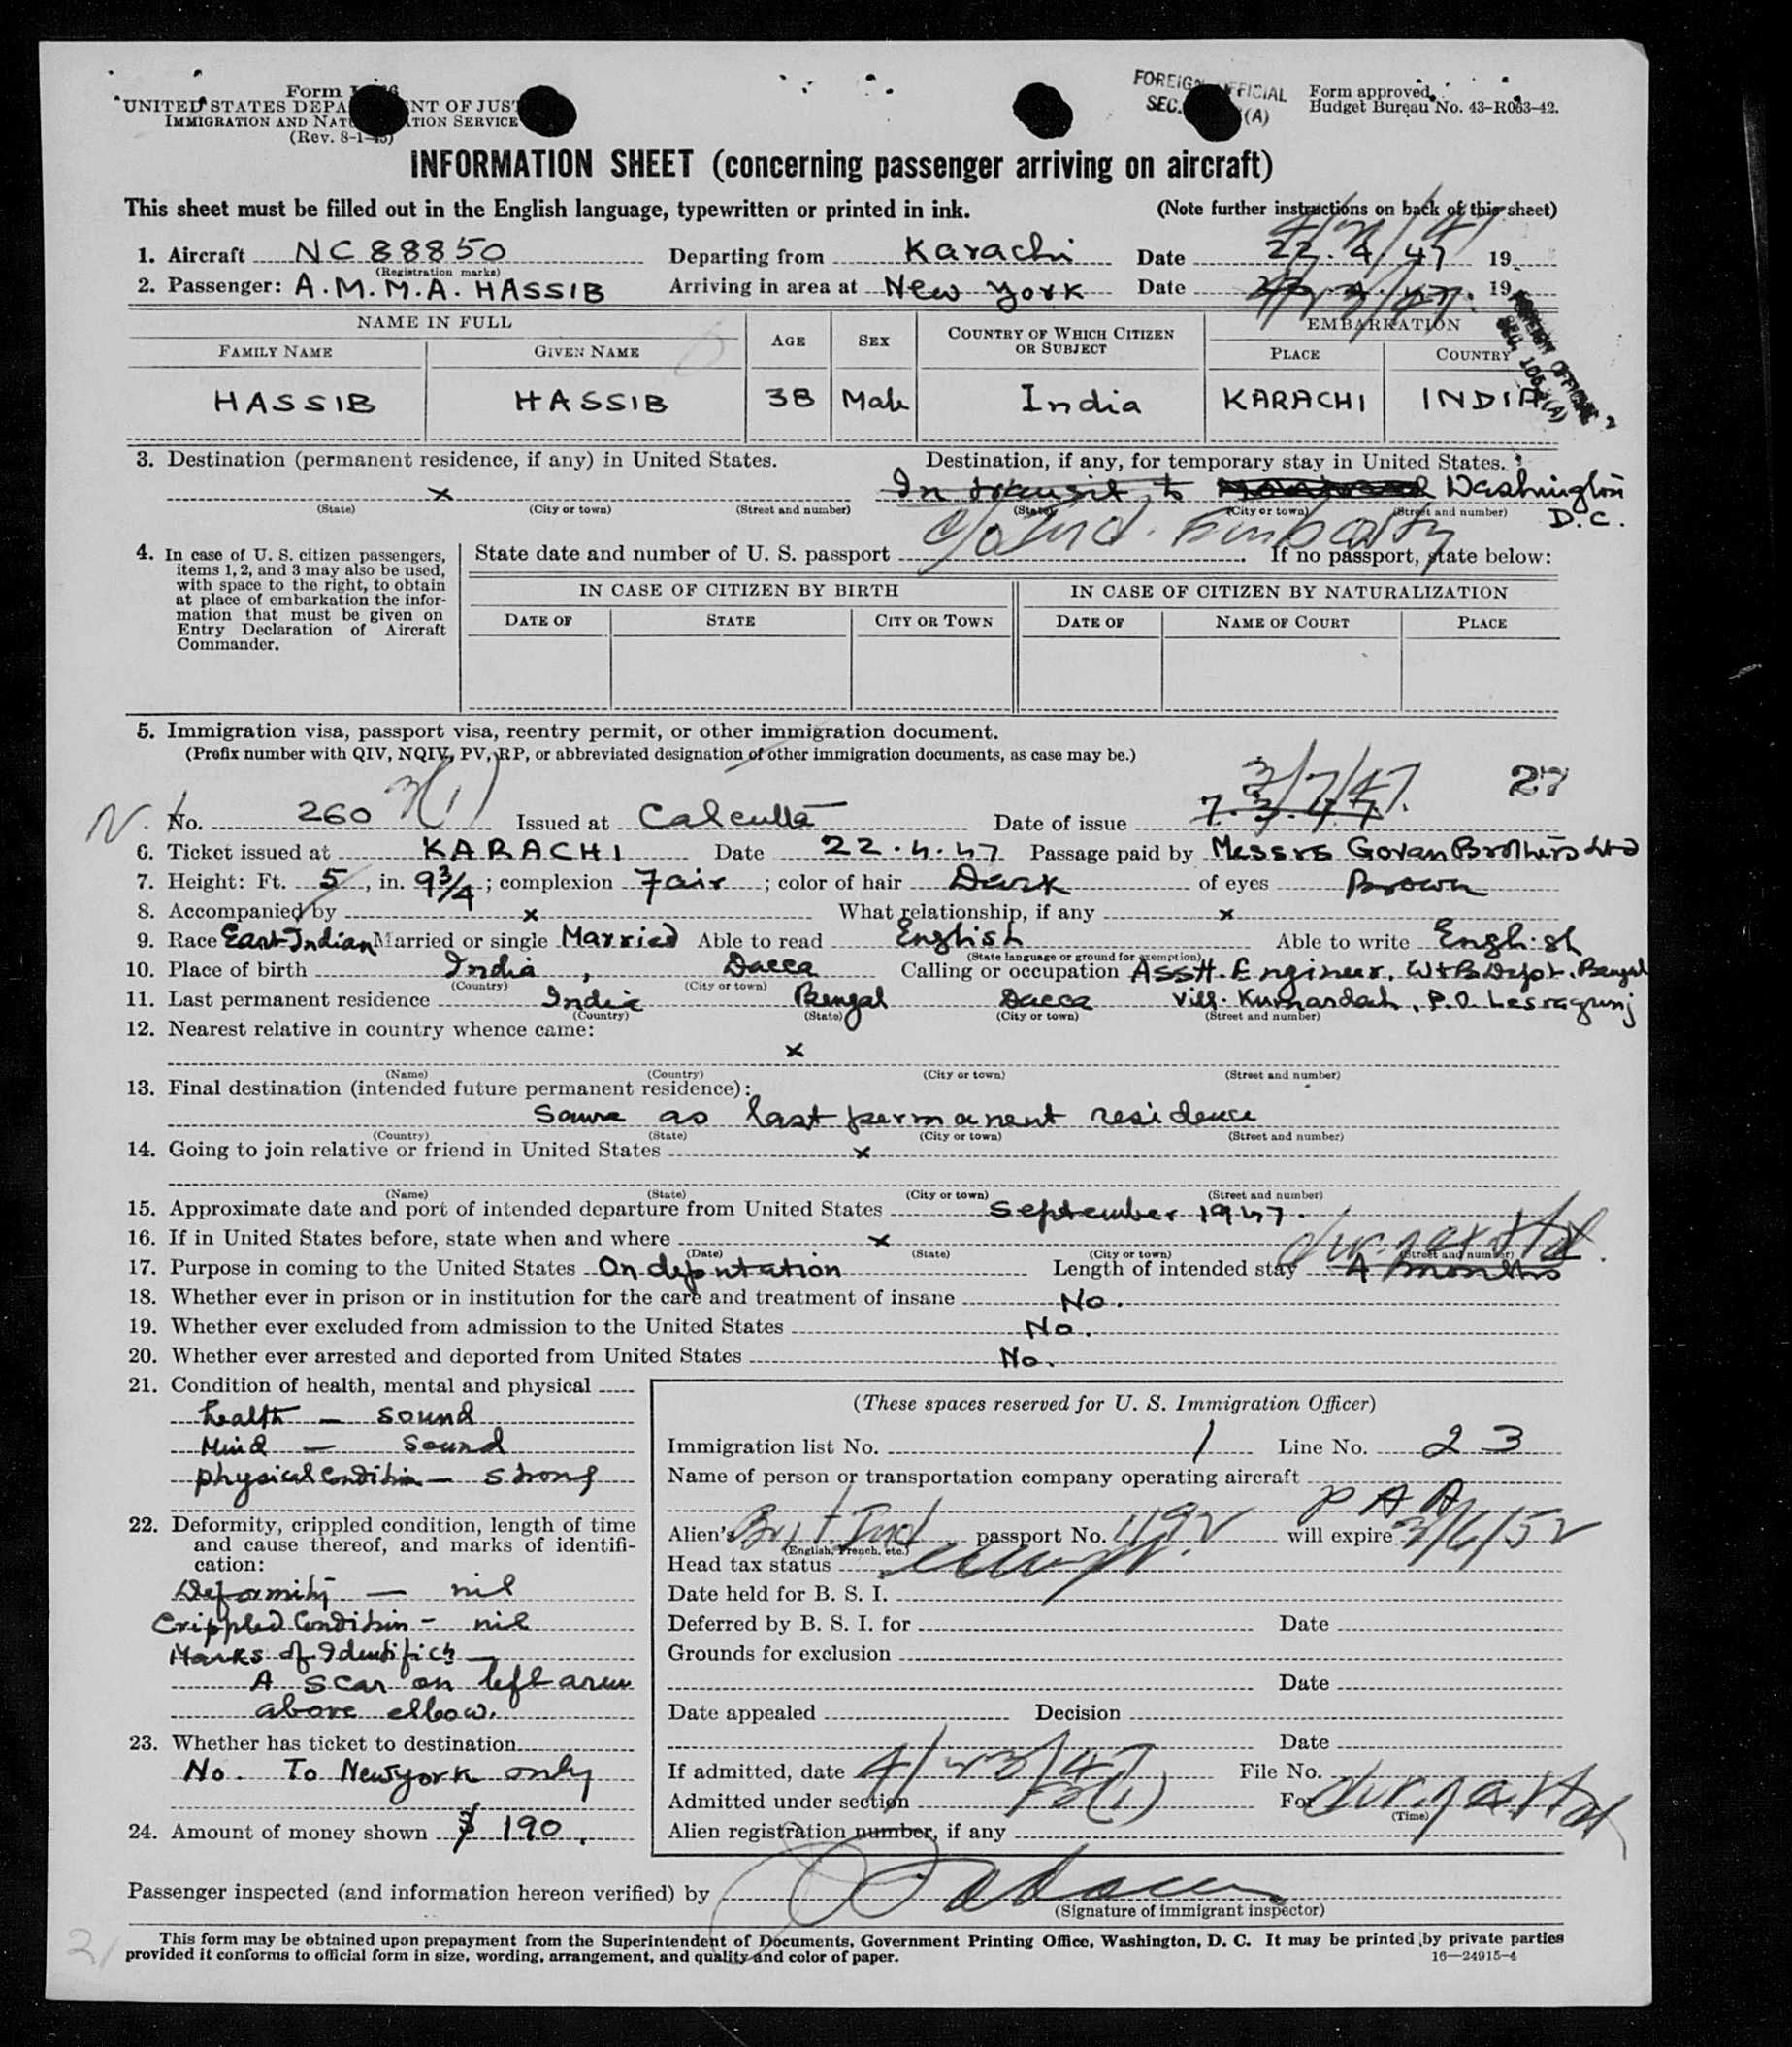 Form
UNITED STATES DEPA NT OF JUST
IMMIGRATION AND NAT TION SERVICE
(Rev. 8-1-45)
FOREIGN OFFICIAL
SEC. (A)
Form approved.
Budget Bureau No. 43-R063-42.
INFORMATION SHEET (concerning passenger arriving on aircraft)
This sheet must be filled out in the English language, typewritten or printed in ink. (Note further instructions on back of this sheet)
1. Aircraft NC 88850 Departing from Karachi Date 22.4.47 19
(Registration marks)
2. Passenger: A.M.M.A. HASSIB Arriving in area at New York Date 19
NAME IN FULL AGE SEX COUNTRY OF WHICH CITIZEN OR SUBJECT EMBARKATION
FAMILY NAME GIVEN NAME PLACE COUNTRY
HASSIB HASSIB 38 Male India KARACHI INDIA
FOREIGN OFFICIAL
3. Destination (permanent residence, if any) in United States. Destination, if any, for temporary stay in United States.
x In transit to Washington D.C.
(State) (City or town) (Street and number) (State) (City or town) (Street and number)
c/o Ind. Embassy
4. In case of U. S. citizen passengers, items 1, 2, and 3 may also be used, with space to the right, to obtain at place of embarkation the information that must be given on Entry Declaration of Aircraft Commander.
State date and number of U. S. passport If no passport, state below:
IN CASE OF CITIZEN BY BIRTH IN CASE OF CITIZEN BY NATURALIZATION
DATE OF STATE CITY OR TOWN DATE OF NAME OF COURT PLACE
5. Immigration visa, passport visa, reentry permit, or other immigration document.
(Prefix number with QIV, NQIV, PV, RP, or abbreviated designation of other immigration documents, as case may be.)
3(1) 3/7/47. 27
No. 260 Issued at Calcutta Date of issue 7.3.47
6. Ticket issued at KARACHI Date 22.4.47 Passage paid by Messrs Govan Brothers Ltd
7. Height: Ft. 5, in. 9 3/4; complexion Fair; color of hair Dark of eyes Brown
8. Accompanied by x What relationship, if any x
9. Race East Indian Married or single Married Able to read English Able to write English
(State language or ground for exemption)
10. Place of birth India, Dacca Calling or occupation Asstt. Engineer, W&B Dept. Bengal
(Country) (City or town)
11. Last permanent residence India Bengal Dacca Vill. Kumardah, P.O.
(Country) (State) (City or town) (Street and number)
12. Nearest relative in country whence came:
x
(Name) (Country) (City or town) (Street and number)
13. Final destination (intended future permanent residence):
Same as last permanent residence
(Country) (State) (City or town) (Street and number)
14. Going to join relative or friend in United States x
(Name) (State) (City or town) (Street and number)
15. Approximate date and port of intended departure from United States September 1947.
16. If in United States before, state when and where x
(Date) (State) (City or town) (Street and number)
17. Purpose in coming to the United States On deputation Length of intended stay 4 months
18. Whether ever in prison or in institution for the care and treatment of insane No.
19. Whether ever excluded from admission to the United States No.
20. Whether ever arrested and deported from United States No.
21. Condition of health, mental and physical
health — sound
Mind — sound
physical Condition — strong
22. Deformity, crippled condition, length of time and cause thereof, and marks of identification:
Deformity — nil
Crippled Condition - nil
Marks of Identificn —
A scar on left arm
above elbow.
23. Whether has ticket to destination
No. To New York only
24. Amount of money shown $ 190.
(These spaces reserved for U. S. Immigration Officer)
Immigration list No. 1 Line No. 23
Name of person or transportation company operating aircraft
PAA
Alien's Brit Ind passport No. 1192 will expire 3/6/52
(English, French, etc.)
Head tax status
Date held for B. S. I.
Deferred by B. S. I. for Date
Grounds for exclusion
Date
Date appealed Decision
Date
If admitted, date 4/23/47 File No.
Admitted under section 3(1) For
(Time)
Alien registration number, if any
Passenger inspected (and information hereon verified) by
(Signature of immigrant inspector)
This form may be obtained upon prepayment from the Superintendent of Documents, Government Printing Office, Washington, D. C. It may be printed by private parties
provided it conforms to official form in size, wording, arrangement, and quality and color of paper. 16—24915-4